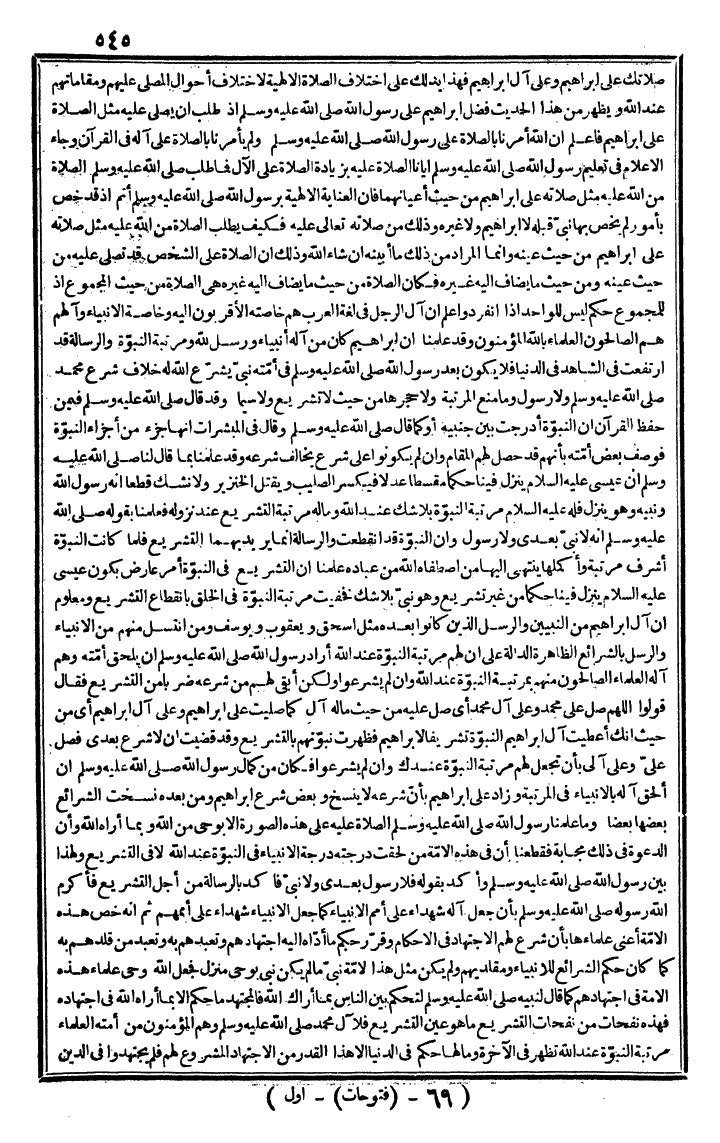 ٥٤٥
صلاتك على ابراهيم وعلى آل ابراهيم فهذا يدلك على اختلاف الصلاة الالهية لاختلاف أحوال المصلى عليهم ومقاماتهم
عند الله ويظهر من هذا الحديث فضل ابراهيم على رسول الله صلى الله عليه وسلم اذ طلب ان يصلى عليه مثل الصلاة
على ابراهيم فاعلم ان الله أمرنا بالصلاة على رسول الله صلى الله عليه وسلم ولم يأمرنا بالصلاة على آله فى القرآن وجاء
الاعلام فى تعليم رسول الله صلى الله عليه وسلم ايانا الصلاة عليه بزيادة الصلاة على الآل فما طلب صلى الله عليه وسلم الصلاة
من الله عليه مثل صلاته على ابراهيم من حيث أعيانهما فان العناية الالهية برسول الله صلى الله عليه وسلم أتم اذ قد خص
بأمور لم يخص بها نبىّ قبله لا ابراهيم ولا غيره وذلك من صلاته تعالى عليه فكيف يطلب الصلاة من الله عليه مثل صلاته
على ابراهيم من حيث عينه وانما المراد من ذلك ما أبينه ان شاء الله وذلك ان الصلاة على الشخص قد تصلى عليه من
حيث عينه ومن حيث ما يضاف اليه غيره فكان الصلاة من حيث ما يضاف اليه غيره هى الصلاة من حيث المجموع اذ
للمجموع حكم ليس للواحد اذا انفرد واعلم ان آل الرجل فى لغة العرب هم خاصته الأقربون اليه وخاصة الانبياء وآلهم
هم الصالحون العلماء بالله المؤمنون وقد علمنا ان ابراهيم كان من آله أنبياء ورسل لله ومرتبة النبوّة والرسالة قد
ارتفعت فى الشاهد فى الدنيا فلا يكون بعد رسول الله صلى الله عليه وسلم فى أمّته نبىّ يشرّع الله له خلاف شرع محمد
صلى الله عليه وسلم ولا رسول وما منع المرتبة ولا حجرها من حيث لا تشريع ولا سيما وقد قال صلى الله عليه وسلم فيمن
حفظ القرآن ان النبوّة أدرجت بين جنبيه أوكما قال صلى الله عليه وسلم وقال فى المبشرات انها جزء من أجزاء النبوّة
فوصف بعض أمّته بأنهم قد حصل لهم المقام وان لم يكونوا على شرع يخالف شرعه وقد علمنا بما قال لنا صلى الله عليه
وسلم ان عيسى عليه السلام ينزل فينا حكما مقسطا عدلا فيكسر الصليب ويقتل الخنزير ولا نشك قطعا انه رسول الله
ونبيه وهو ينزل فله عليه السلام مرتبة النبوّة بلا شك عند الله وماله مرتبة التشريع عند نزوله فعلمنا بقوله صلى الله
عليه وسلم انه لا نبىّ بعدى ولا رسول وان النبوّة قد انقطعت والرسالة انما يريد بهما التشريع فلما كانت النبوّة
أشرف مرتبة وأكملها ينتهى اليها من اصطفاه الله من عباده علمنا ان التشريع فى النبوّة أمر عارض بكون عيسى
عليه السلام ينزل فينا حكما من غير تشريع وهو نبىّ بلا شك فخفيت مرتبة النبوّة فى الخلق بانقطاع التشريع ومعلوم
ان آل ابراهيم من النبيين والرسل الذين كانوا بعده مثل اسحق ويعقوب ويوسف ومن انتسل منهم من الانبياء
والرسل بالشرائع الظاهرة الدالة على ان لهم مرتبة النبوّة عند الله أراد رسول الله صلى الله عليه وسلم ان يلحق أمّته وهم
آله العلماء الصالحون منهم بمرتبة النبوّة عند الله وان لم يشرعوا ولكن أبقى لهم من شرعه ضربا من التشريع فقال
قولوا اللهم صل على محمد وعلى آل محمد أى صل عليه من حيث ماله آل كما صليت على ابراهيم وعلى آل ابراهيم أى من
حيث انك أعطيت آل ابراهيم النبوّة تشريفا لابراهيم فظهرت نبوّتهم بالتشريع وقد قضيت ان لا شرع بعدى فصل
علىّ وعلى آلى بأن تجعل لهم مرتبة النبوّة عندك وان لم يشرعوا فكان من كمال رسول الله صلى الله عليه وسلم ان
ألحق آله بالانبياء فى المرتبة وزاد على ابراهيم بأنّ شرعه لا ينسخ وبعض شرع ابراهيم ومن بعده نسخت الشرائع
بعضها بعضا وما علمنا رسول الله صلى الله عليه وسلم الصلاة عليه على هذه الصورة الا بوحى من الله وبما أراه الله وأن
الدعوة فى ذلك مجابة فقطعنا أن فى هذه الامّة من لحقت درجته درجة الانبياء فى النبوّة عند الله لا فى التشريع ولهذا
بين رسول الله صلى الله عليه وسلم وأكد بقوله فلا رسول بعدى ولا نبىّ فاكد بالرسالة من أجل التشريع فأكرم
الله رسوله صلى الله عليه وسلم بأن جعل آله شهداء على أمم الانبياء كما جعل الانبياء شهداء على أممهم ثم انه خص هذه
الامّة أعنى علماءها بأن شرع لهم الاجتهاد فى الاحكام وقرّر حكم ما أدّاه اليه اجتهادهم وتعبدهم به وتعبد من قلدهم به
كما كان حكم الشرائع للانبياء ومقلديهم ولم يكن مثل هذا لامّة نبىّ ما لم يكن نبى بوحى منزل فجعل الله وحى علماء هذه
الامة فى اجتهادهم كما قال لنبيه صلى الله عليه وسلم لتحكم بين الناس بما أراك الله فالمجتهد ما حكم الا بما أراه الله فى اجتهاده
فهذه نفحات من نفحات التشريع ما هو عين التشريع فلآل محمد صلى الله عليه وسلم وهم المؤمنون من أمته العلماء
مرتبة النبوّة عند الله تظهر فى الآخرة وما لها حكم فى الدنيا الا هذا القدر من الاجتهاد المشروع لهم فلم يجتهدوا فى الدين
( ٦٩ - (فتوحات) - اول )